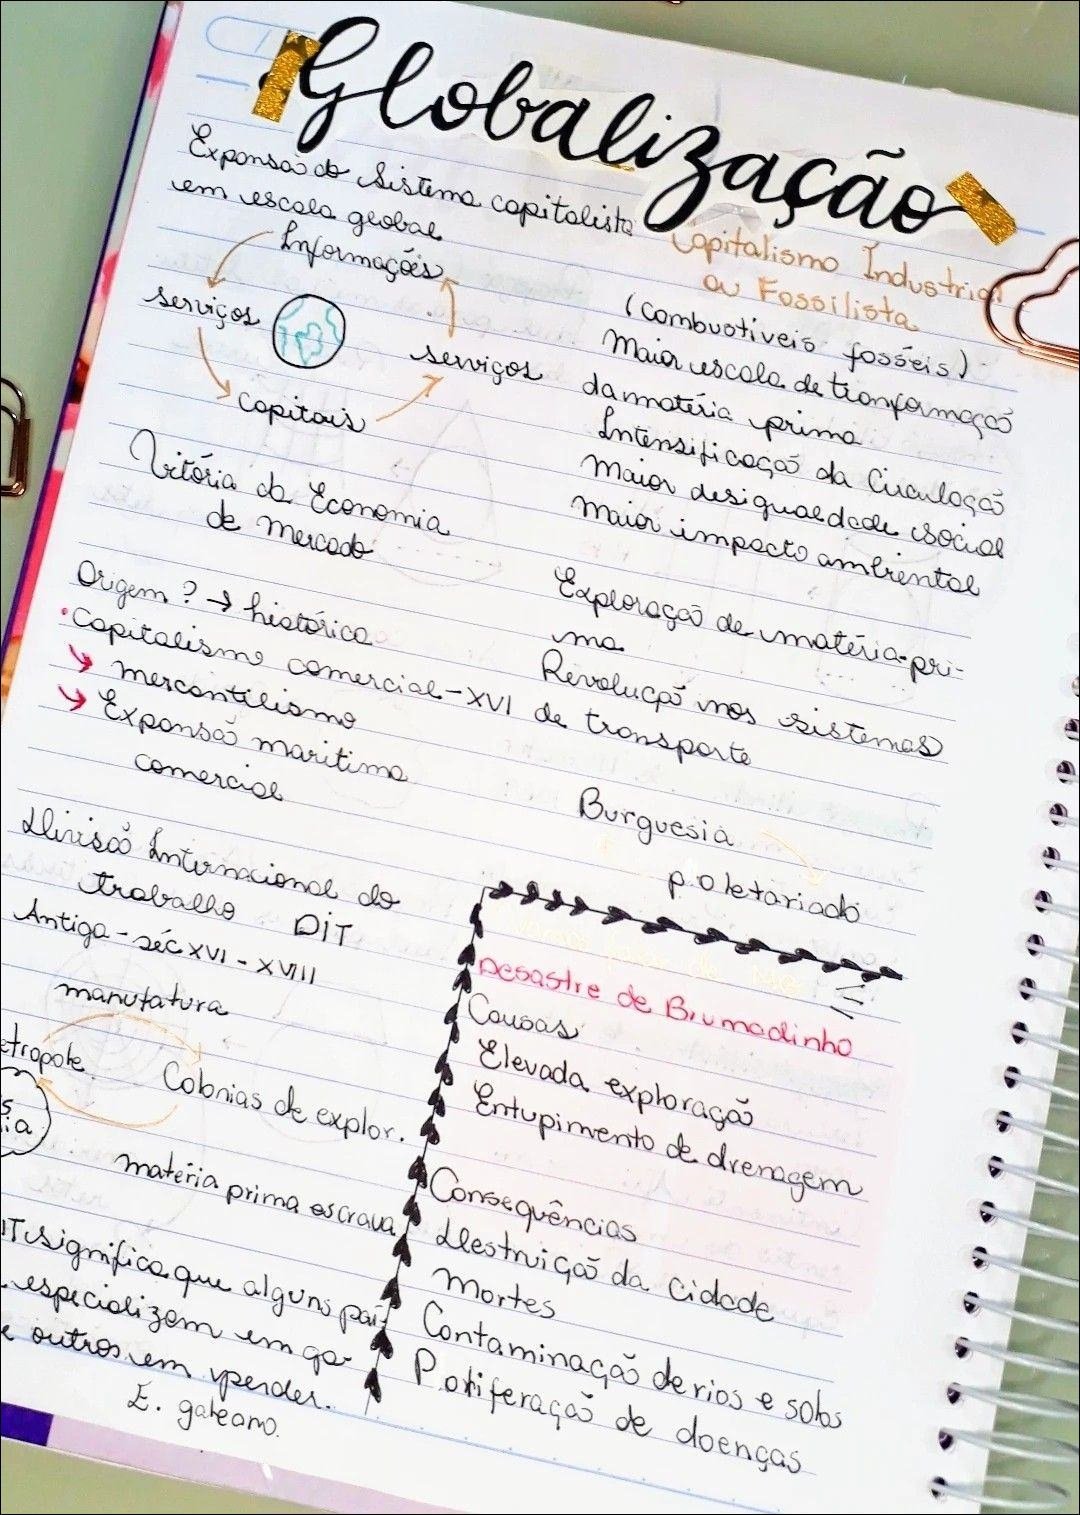 Globalização
Expansão do Sistema capitalista
em escala global
Informações
serviços
serviços
capitais
Vitória da Economia
de mercado
Origem? → histórica
• Capitalismo comercial - XVI
↳ mercantilismo
↳ Expansão maritima
comercial
Divisão Internacional do
trabalho DIT
Antiga - séc XVI - XVIII
manufatura
etropole
Colonias de explor.
s
ia
matéria prima escrava
IT significa que alguns paí-
especializam em ga-
e outros em perder.
E. galeano.
Capitalismo Industrial
ou Fossilista
(combustiveis fosséis)
Maior escala de tranformação
da matéria prima
Intensificação da Circulação
Maior desigualdade social
Maior impacto ambiental
Exploração de matéria-pri-
ma
Revolução nos sistemas
de transporte
Burguesia
poletariado
Desastre de Brumadinho
Causas
Elevada exploração
Entupimento de drenagem
Consequências
Destruição da cidade
Mortes
Contaminação de rios e solos
Poliferação de doenças